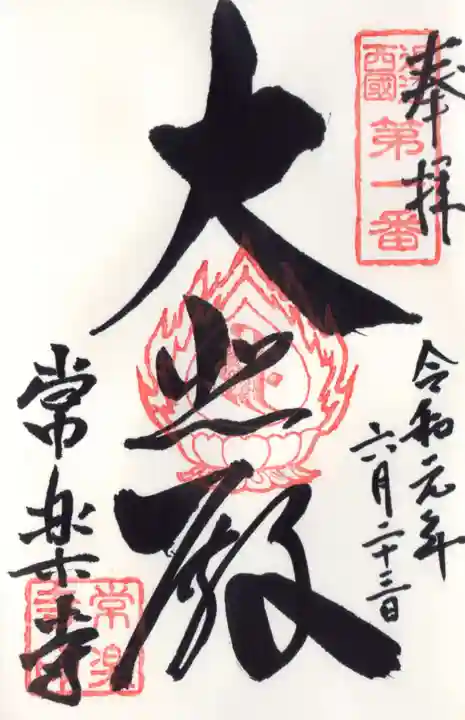 奉拝
近江
西國
第一番
令和元年
六月二十三日
大悲殿
常楽寺
常楽